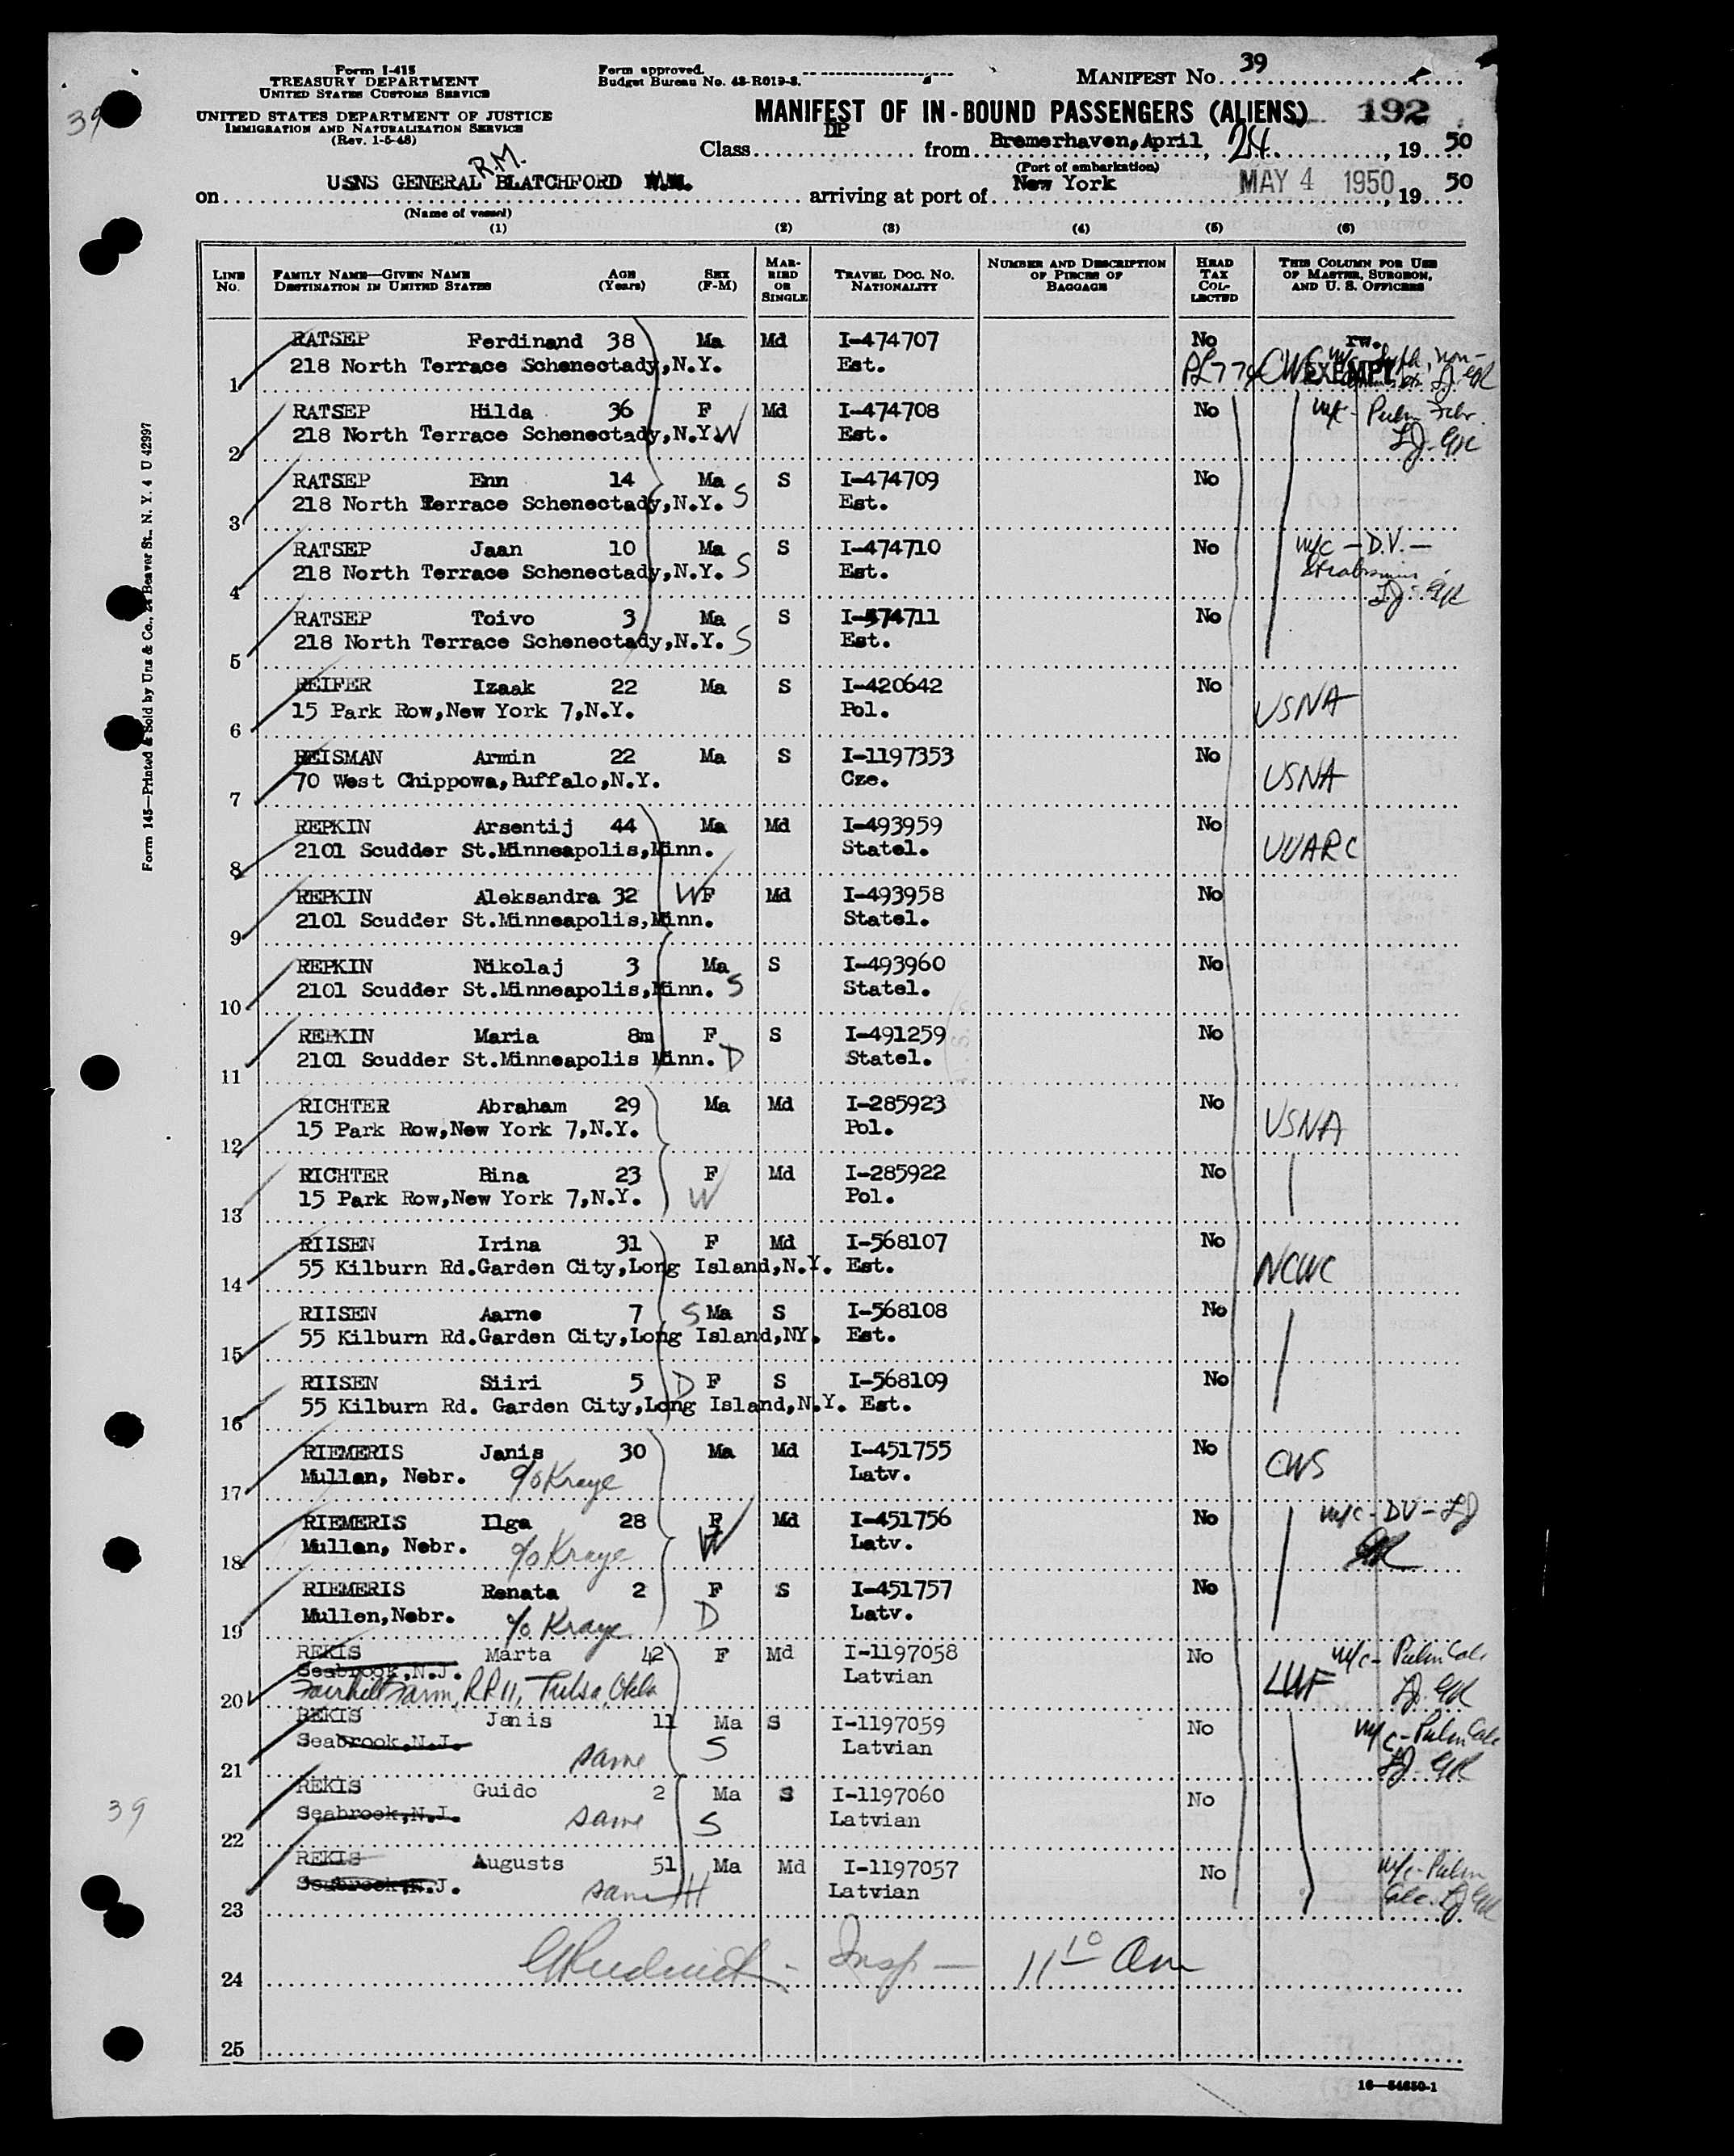 Form I-415
TREASURY DEPARTMENT
UNITED STATES CUSTOMS SERVICE
UNITED STATES DEPARTMENT OF JUSTICE
IMMIGRATION AND NATURALIZATION SERVICE
(Rev. 1-5-48)
Form approved.
Budget Bureau No. 43-R019-3.
MANIFEST No. 39
39
MANIFEST OF IN-BOUND PASSENGERS (ALIENS) 192
Class DP from Bremerhaven, April 24, 1950
(Port of embarkation)
on USNS GENERAL R.M. BLATCHFORD arriving at port of New York MAY 4 1950, 1950
(Name of vessel)
(1) (2) (3) (4) (5) (6)
LINE No. FAMILY NAME—GIVEN NAME DESTINATION IN UNITED STATES AGE (Years) SEX (F-M) MARRIED OR SINGLE TRAVEL DOC. NO. NATIONALITY NUMBER AND DESCRIPTION OF PIECES OF BAGGAGE HEAD TAX COLLECTED THIS COLUMN FOR USE OF MASTER, SURGEON, AND U. S. OFFICERS
RATSEP Ferdinand 38 Ma Md I-474707 No rw.
1 218 North Terrace Schenectady,N.Y. Est. PL774 CWS EXEMPT
RATSEP Hilda 36 F Md I-474708 No m/c - Pulm
2 218 North Terrace Schenectady,N.Y. W Est.
RATSEP Enn 14 Ma S I-474709 No
3 218 North Terrace Schenectady,N.Y. S Est.
RATSEP Jaan 10 Ma S I-474710 No m/c - D.V. -
4 218 North Terrace Schenectady,N.Y. S Est.
RATSEP Toivo 3 Ma S I-474711 No
5 218 North Terrace Schenectady,N.Y. S Est.
REIFER Izaak 22 Ma S I-420642 No
6 15 Park Row,New York 7,N.Y. Pol. USNA
REISMAN Armin 22 Ma S I-1197353 No
7 70 West Chippowa,Buffalo,N.Y. Cze. USNA
REPKIN Arsentij 44 Ma Md I-493959 No
8 2101 Scudder St.Minneapolis,Minn. Statel. UUARC
REPKIN Aleksandra 32 W F Md I-493958 No
9 2101 Scudder St.Minneapolis,Minn. Statel.
REPKIN Nikolaj 3 Ma S I-493960 No
10 2101 Scudder St.Minneapolis,Minn. S Statel.
REPKIN Maria 8m F S I-491259 No
11 2101 Scudder St.Minneapolis Minn. D Statel.
RICHTER Abraham 29 Ma Md I-285923 No
12 15 Park Row,New York 7,N.Y. Pol. USNA
RICHTER Bina 23 F Md I-285922 No
13 15 Park Row,New York 7,N.Y. W Pol.
RIISEN Irina 31 F Md I-568107 No
14 55 Kilburn Rd.Garden City,Long Island,N.Y. Est. NCWC
RIISEN Aarne 7 S Ma S I-568108 No
15 55 Kilburn Rd.Garden City,Long Island,NY. Est.
RIISEN Siiri 5 D F S I-568109 No
16 55 Kilburn Rd. Garden City,Long Island,N.Y. Est.
RIEMERIS Janis 30 Ma Md I-451755 No
17 Mullan, Nebr. c/o Kraye Latv. CWS
RIEMERIS Ilga 28 F Md I-451756 No m/c - DV -
18 Mullen, Nebr. c/o Kraye W Latv.
RIEMERIS Renata 2 F S I-451757 No
19 Mullen,Nebr. c/o Kraye D Latv.
REKIS Marta 42 F Md I-1197058 No m/c - Pulm Calc
Seabrook,N.J. Latvian
20 Fairhill Farm, RR 11, Tulsa, Okla LWF
REKIS Janis 11 Ma S I-1197059 No m/c - Pulm Calc
21 Seabrook,N.J. same S Latvian
REKIS Guido 2 Ma S I-1197060 No
22 Seabrook,N.J. same S Latvian
REKIS Augusts 51 Ma Md I-1197057 No m/c - Pulm
23 Seabrook,N.J. same H Latvian Calc.
24 Insp - 11 10 Am
25
39
Form 145—Printed & Sold by Unz & Co., 24 Beaver St., N. Y. 4 U 42997
16—54650-1